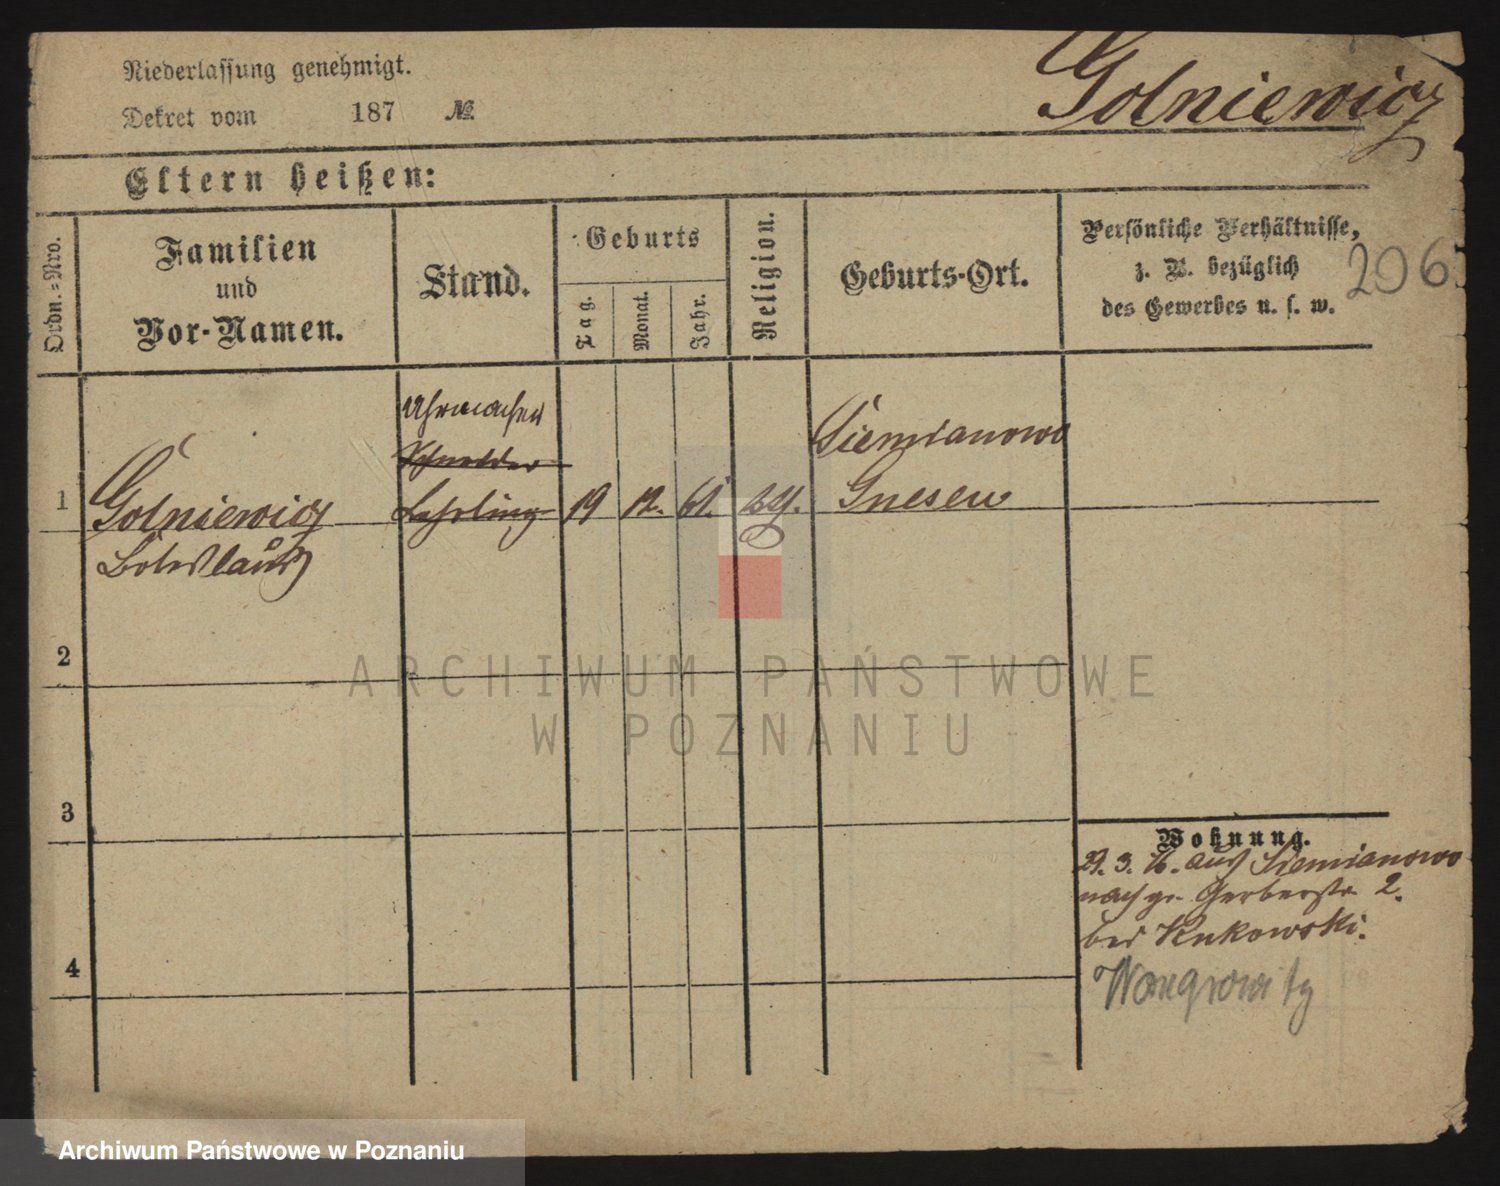 Niederlassung genehmigt.
Dekret vom 187 №
Golniewicz
Eltern heißen:
Ordn.=Nro.
Familien
und
Vor-Namen.
Stand.
Geburts
Tag.
Monat.
Jahr.
Religion.
Geburts-Ort.
Persönliche Verhältnisse,
z. B. bezüglich
des Gewerbes u. s. w.
206
1
Golniewicz
Boleslaus
Uhrmacher
Schneider
Lehrling
19
12.
61.
Siemianowo
Gnesen
2
3
4
Wohnung.
29. 3. 76. aus Siemianowo
nach gr. Gerberstr. 2.
bei Kukowski.
Wongrowitz
ARCHIWUM PAŃSTWOWE
W POZNANIU
Archiwum Państwowe w Poznaniu